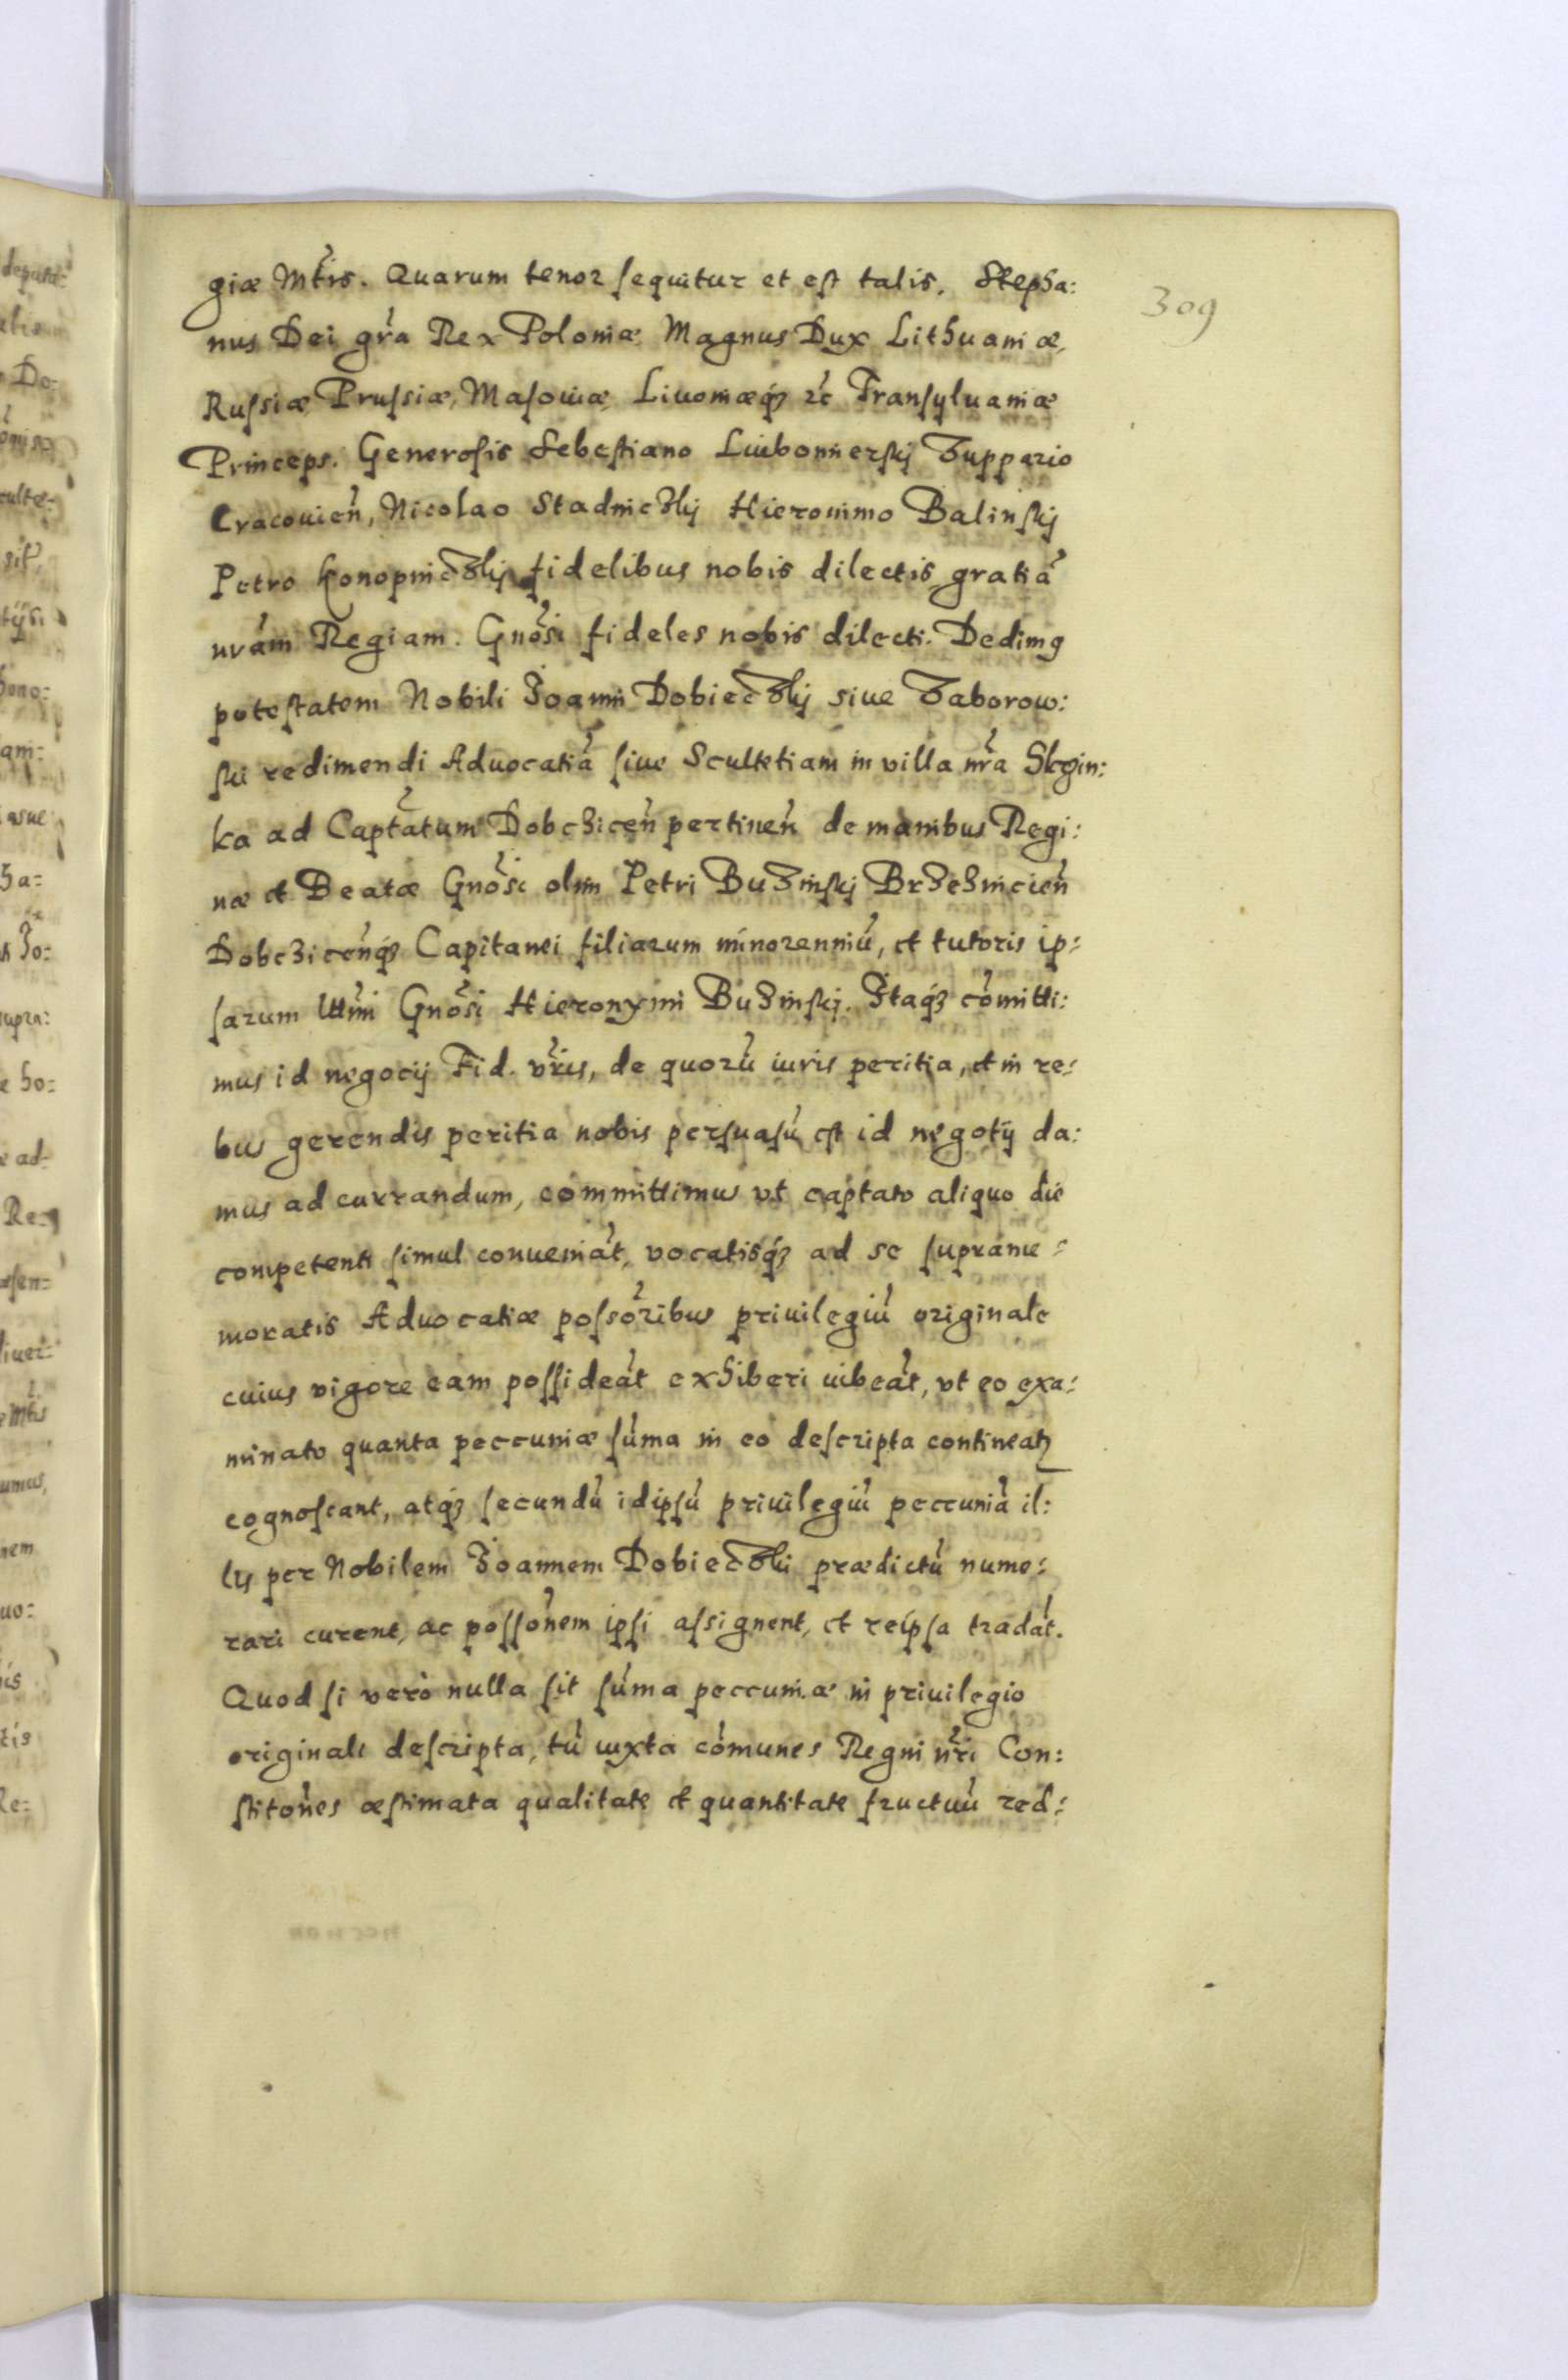 309
giæ Mt̃is. Quarum tenor sequitur et est talis. Stepha:
nus Dei gr̃a Rex Poloniæ Magnus Dux Lithuaniæ,
Russiæ, Prussiæ, Masouiæ, Liuoniæq́ꝫ ꝛc̃ Transyluaniæ
Princeps. Generosis Sebestiano Lubomierskj Zuppario
Cracouien̄, Nicolao Stadniczkij Hieronimo Balinskij
Petro Konopniczkij fidelibus nobis dilectis gratiā
nr̃am Regiam. Gnõsi fideles nobis dilecti. Dedimꝯ
potestatem Nobili Joanni Dobieczkij siue Zaborow:
ski redimendi Aduocatiā siue Scultetiam in villa nr̃a Skrzin:
ka ad Capt̃atum Dobczicen̄ pertinen̄ de manibus Regi:
næ et Beatæ Gnõsi olim Petri Buzinskj Brzeznicien̄
Dobczicen̄q́ꝫ Capitanei filiarum minorenniū, et tutoris ip:
sarum ltt̃mi Gnõsi Hieronymi Buzinskj. Itaq́ꝫ cōmitti:
mus id negocij Fid. vr̃is, de quorū iuris peritia, et in re:
bus gerendis peritia nobis persuasū est id negotÿ da:
mus ad currandum, committimus vt captato aliquo die
competenti simul conueniāt, vocatisq́ꝫ ad se suprame:
moratis Aduocatiæ possõribus priuilegiū originale
cuius vigore eam possideāt exhiberi iubeāt, vt eo exa:
minato quanta peccuniæ sūma in eo descripta contineatꝫ
cognoscant, atq́ꝫ secundū idipsū priuilegiū peccuniā il:
lis per Nobilem Joannem Dobieczki prædictū nume:
rari curent, ac possōnem ipsi assignent, et reipsa tradāt.
Quod si verò nulla sit sūma peccuniæ in priuilegio
originali descripta, tū iuxta cōmunes Regni nr̃i Con:
stitōnes æstimata qualitate et quantitate fructuū red: